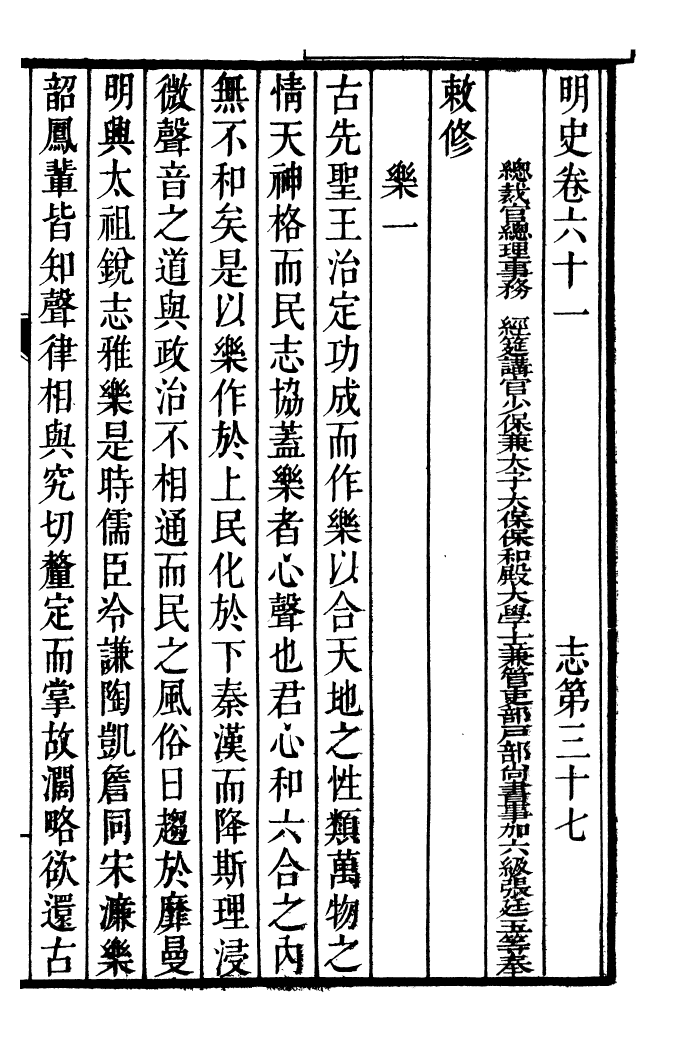 明史卷六十一　志第三十七
總裁官總理事務　經筵講官少保兼太子太保保和殿大學士兼管吏部戸部尙書事加六級張廷玉等奉
敕修
樂一
古先聖王治定功成而作樂以合天地之性類萬物之
情天神格而民志協蓋樂者心聲也君心和六合之內
無不和矣是以樂作於上民化於下秦漢而降斯理浸
微聲音之道與政治不相通而民之風俗日趨於靡曼
明興太祖銳志雅樂是時儒臣冷謙陶凱詹同宋濂樂
韶鳳輩皆知聲律相與究切釐定而掌故濶略欲還古